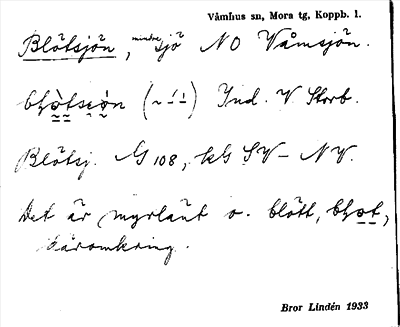 Våmhus sn, Mora tg, Koppb. l.
Blötsjön, mindre sjö NO Våmsjön.
Ind. V Storb.
Blötsj. G 108, kG SV – NV.
Det är myrlänt o. blött,
däromkring.
Bror Lindén 1933